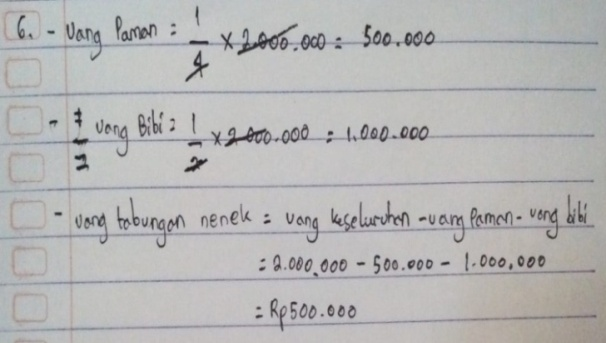 6. - Uang Paman = 1/4 × 2.000.000 = 500.000
- Uang Bibi = 1/2 × 2.000.000 = 1.000.000
- Uang tabungan nenek = uang keseluruhan - uang Paman - uang bibi
= 2.000.000 - 500.000 - 1.000.000
= Rp500.000